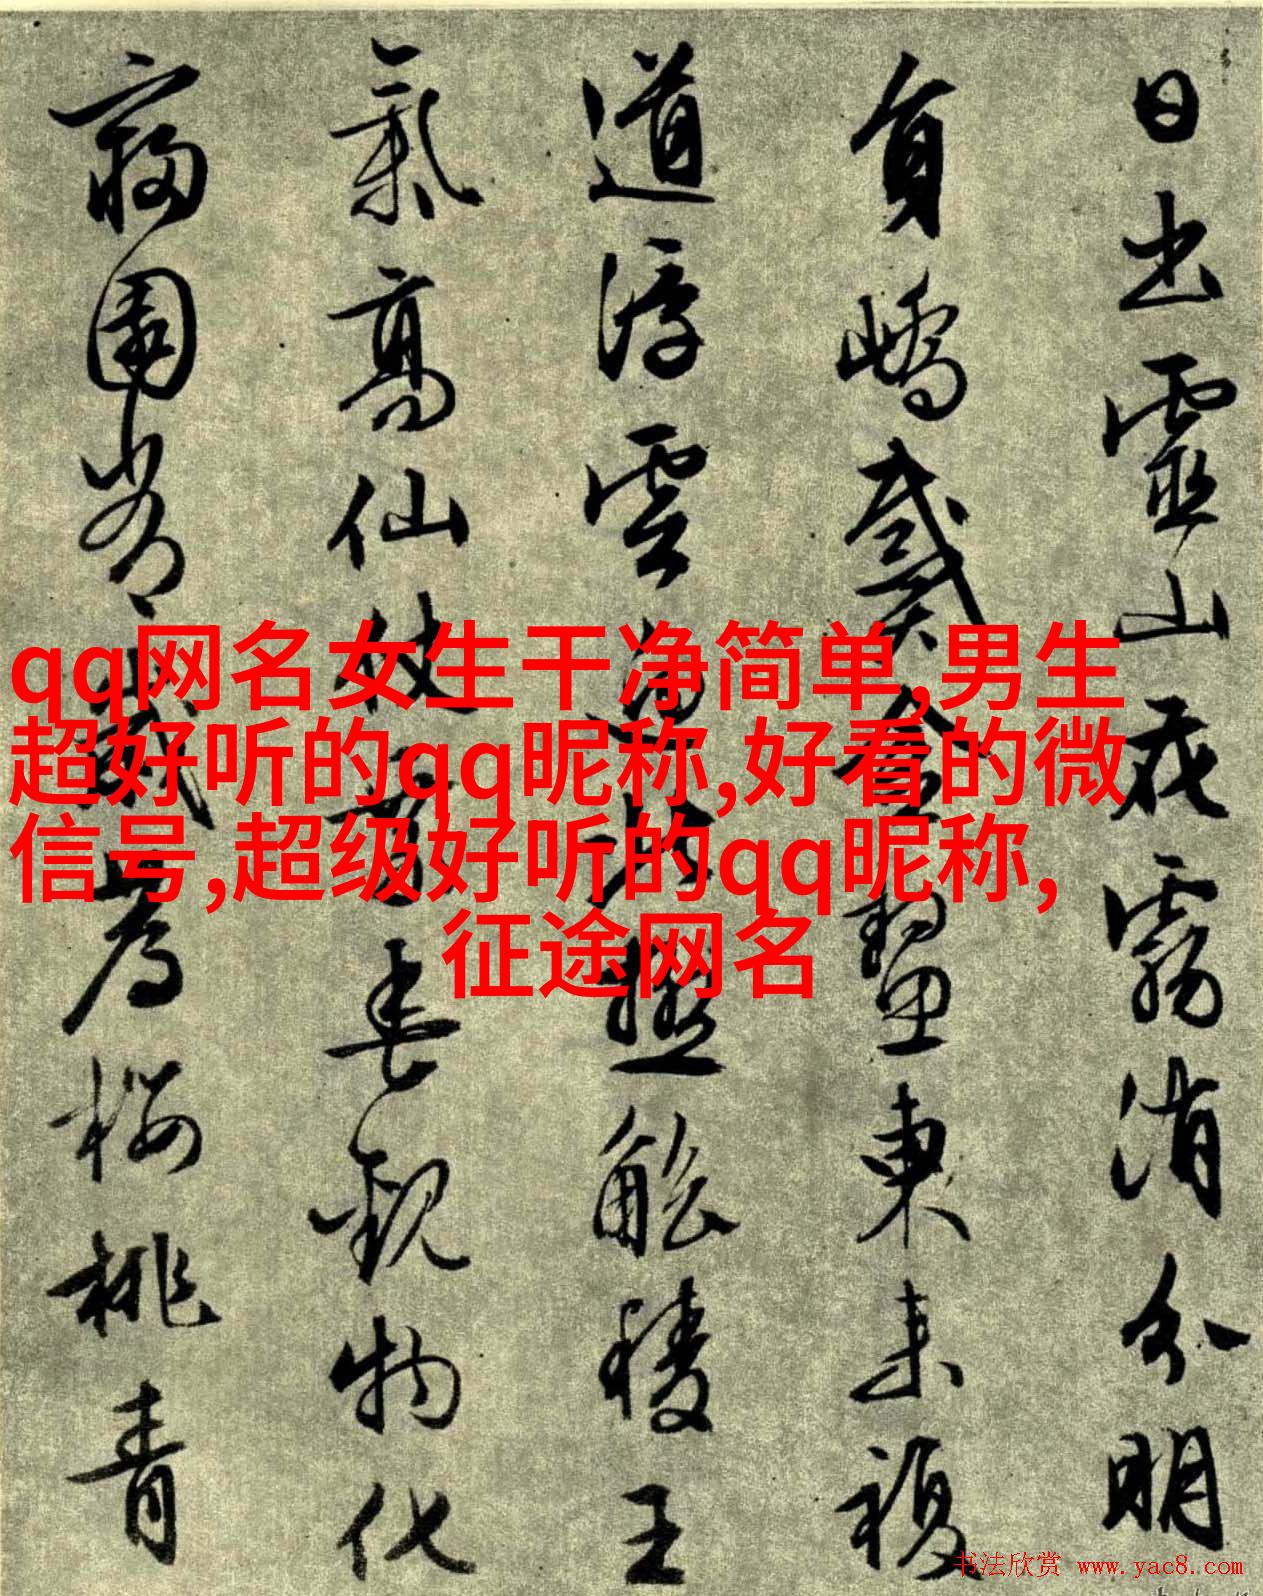 日出靈山花霧消分明
員嶠戴金鼇東來複
道浮雲
觚稜王
氣高仙仗
春觀物化
寢園
歲薦櫻桃青
qq网名女生干净简单,男生
超好听的qq昵称,好看的微
信号,超级好听的qq昵称,
征途网名
书法欣赏 www.yac8.com